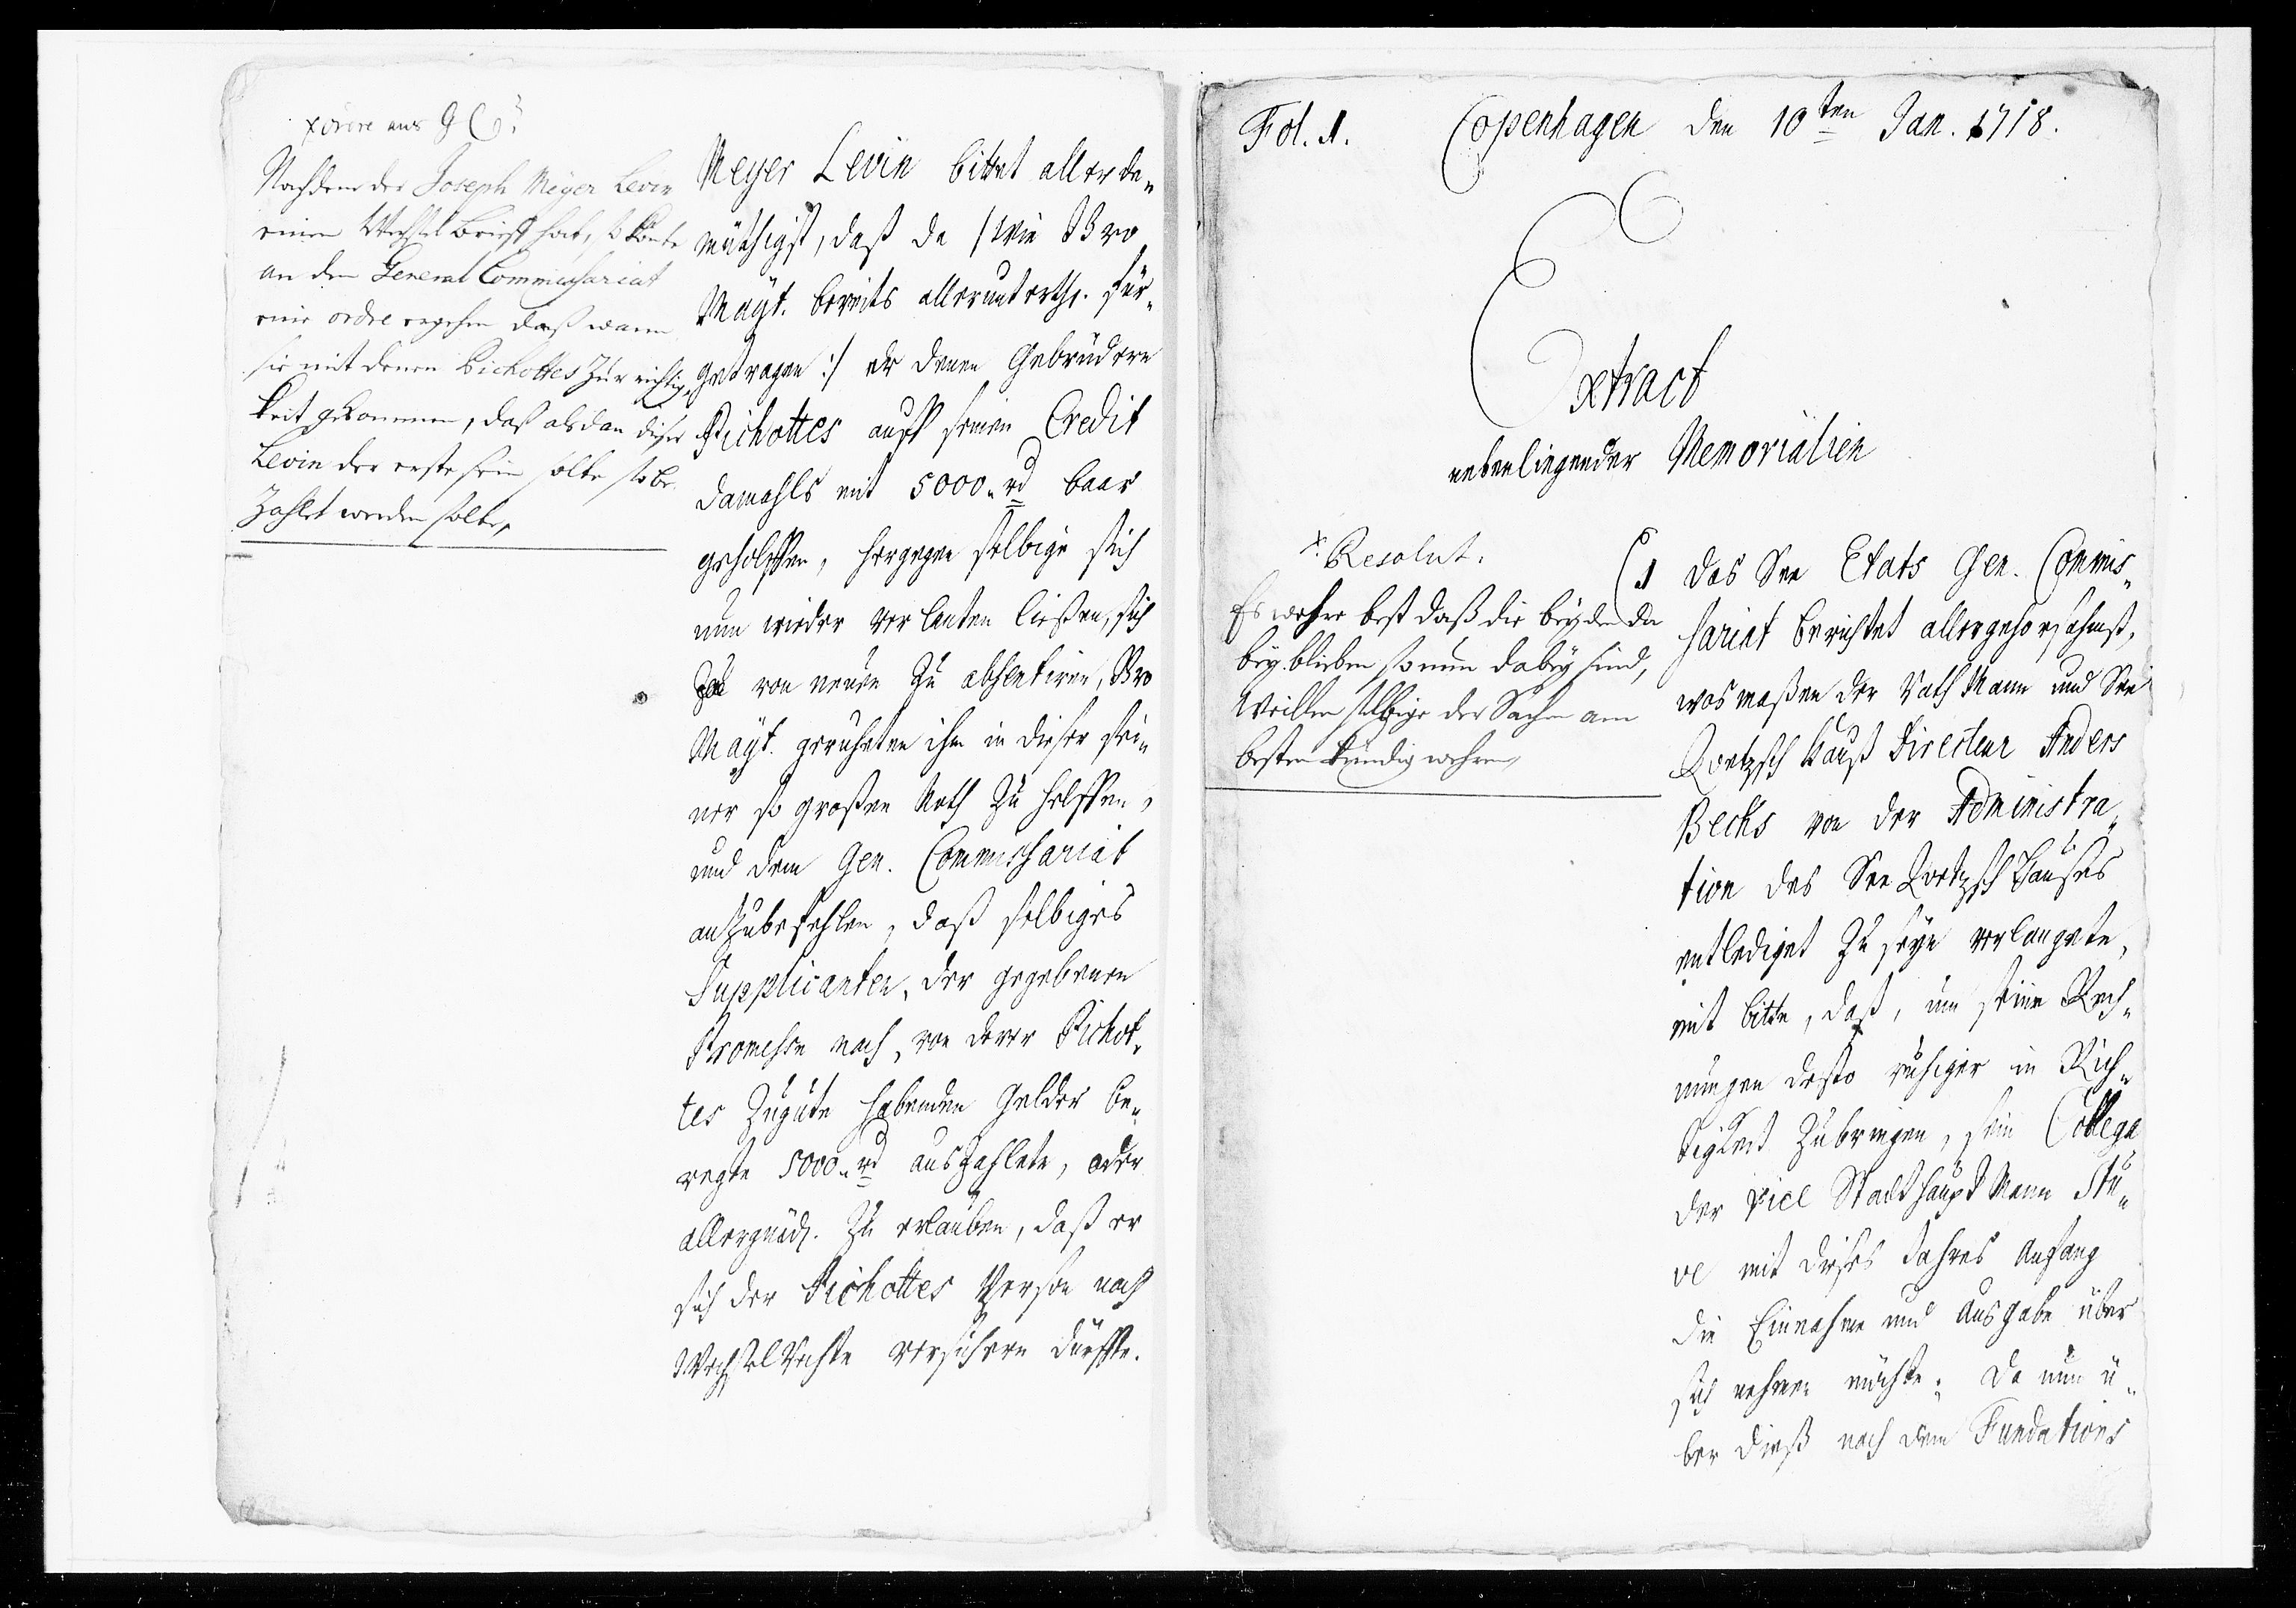 x ordre aus G C:
Nachdem der Joseph Meyer Levin
einen Wechsel brieff hat, so könte
an dem General Commissariat
eine ordre ergehen daß wann
sie mit denen Pichottes zur richtig„
keit gekommen, daß alsdan dieser
Levin der erste sein solte so be
zahlet werden solte,
Meyer Levin bittet allerde„
müthigst, daß da /: wie Ewr.
Mayt. bereits allerunterthg. für„
getragen :/ er denen Gebrüdern
Pichottes auff seinen Credit
damahls mit 5000„ rd baar
geholffen, hergegen selbige sich
nun wieder verlauten ließen, sich
von neuen zu absentiren, Ewr.
Mayt. geruheten ihm in dieser sei„
ner so großen Noth zu helffen,
und dem Gen. Commissariat
anzubefehlen, daß selbiges
Supplicanten, der gegebenen
Promesse nach, von derer Pichot„
tes zugute habenden Gelder be„
regte 5000„ rd auszahlete, oder
allergnäd. zu erlauben, daß er
sich der Pichottes Person nach
Wechsel Rechte versichern dürffte.
Fol. 1.
Copenhagen den 10ten Jan. 1718.
Extract
nebenliegender Memorialien
x Resolut.
Es wehre best daß die beyden da
bey blieben so nun dabey sind,
Weillen selbige der Sachen am
besten kündig wehren,
1 Das See Etats Gen. Commis„
sariat berichtet allergehorsahmst,
was maßen der Rath Mann und See
Qvetzsch Hauß Directeur Anders
Becks von der Administra„
tion des See Qvetzsch Hauses
entlediget zu seyn verlangete,
mit bitte, daß, um seine Rech„
nungen desto ruhiger in Rich„
tigkeit zubringen, sein Collega
der vice Stadt Haupt Mann Stu„
ve mit dieses Jahres Anfang
die Einnahme und Ausgabe über
sich nehmen möchte: Da nun ü„
ber dieß nach dem Fundations